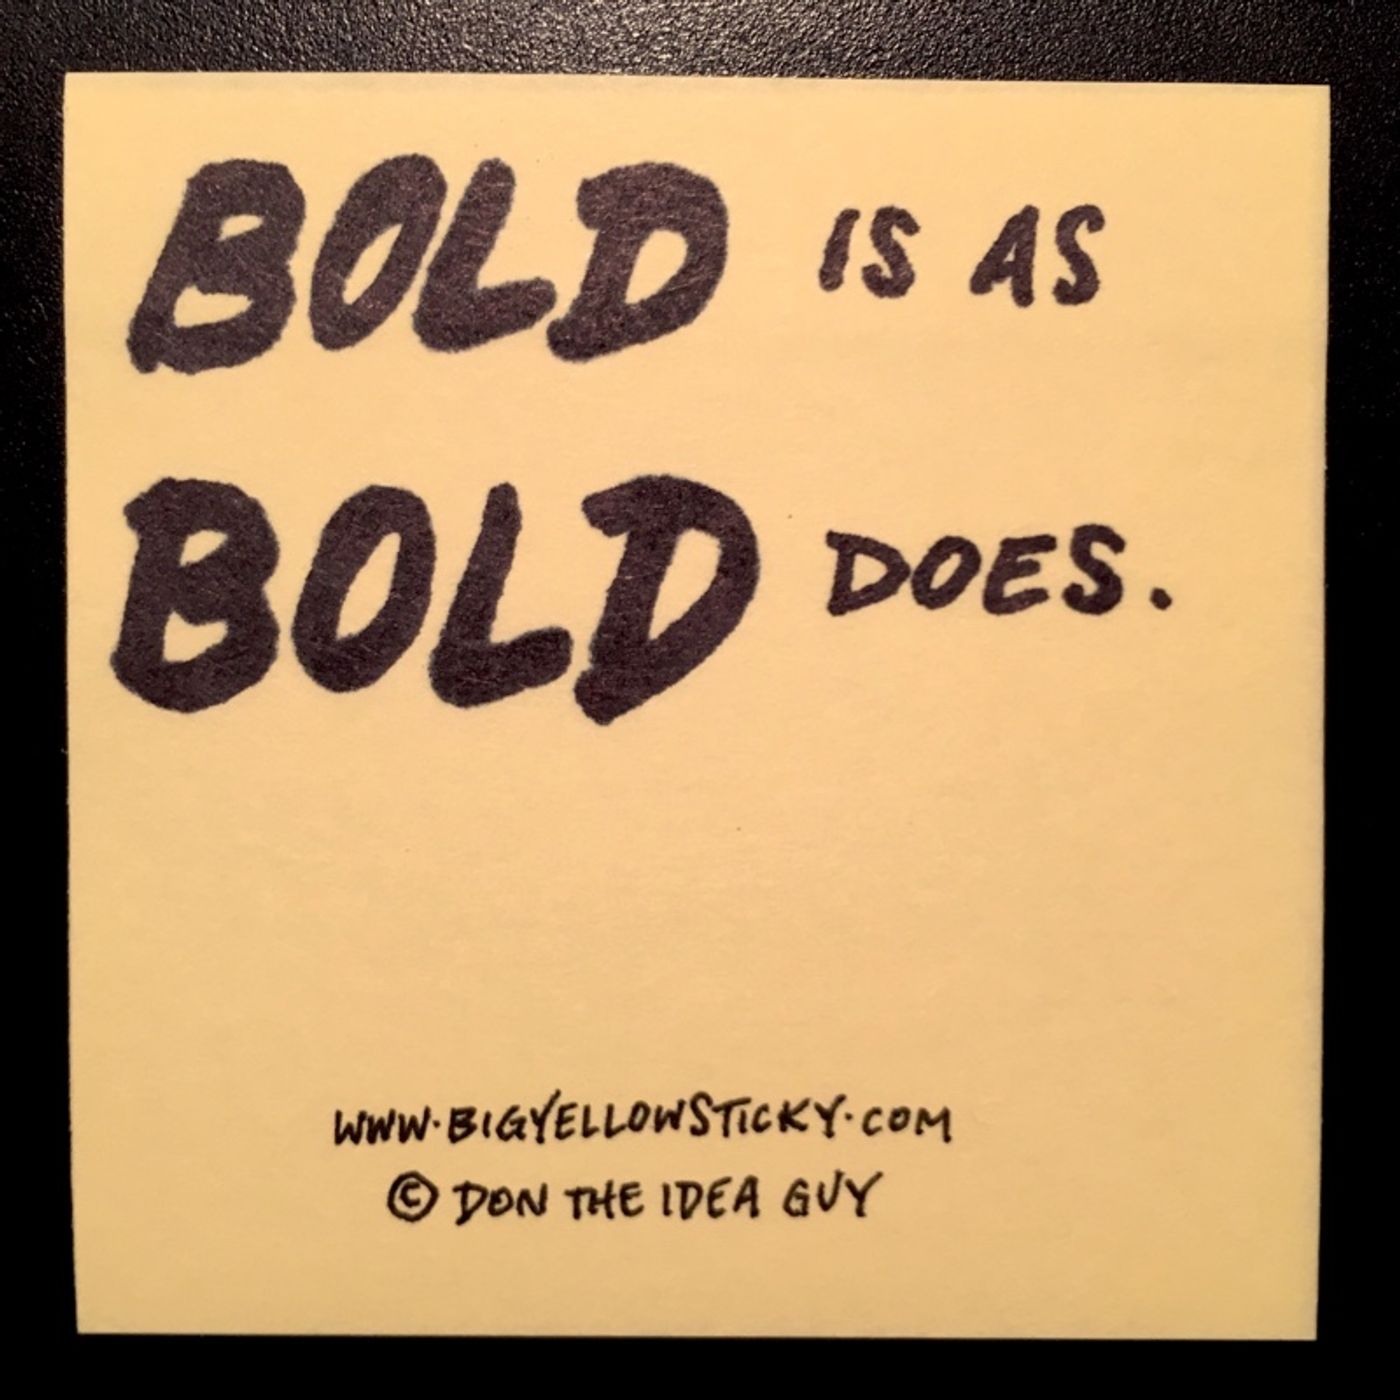 BOLD IS AS
BOLD DOES.
WWW.BIGYELLOWSTICKY.COM
© DON THE IDEA GUY